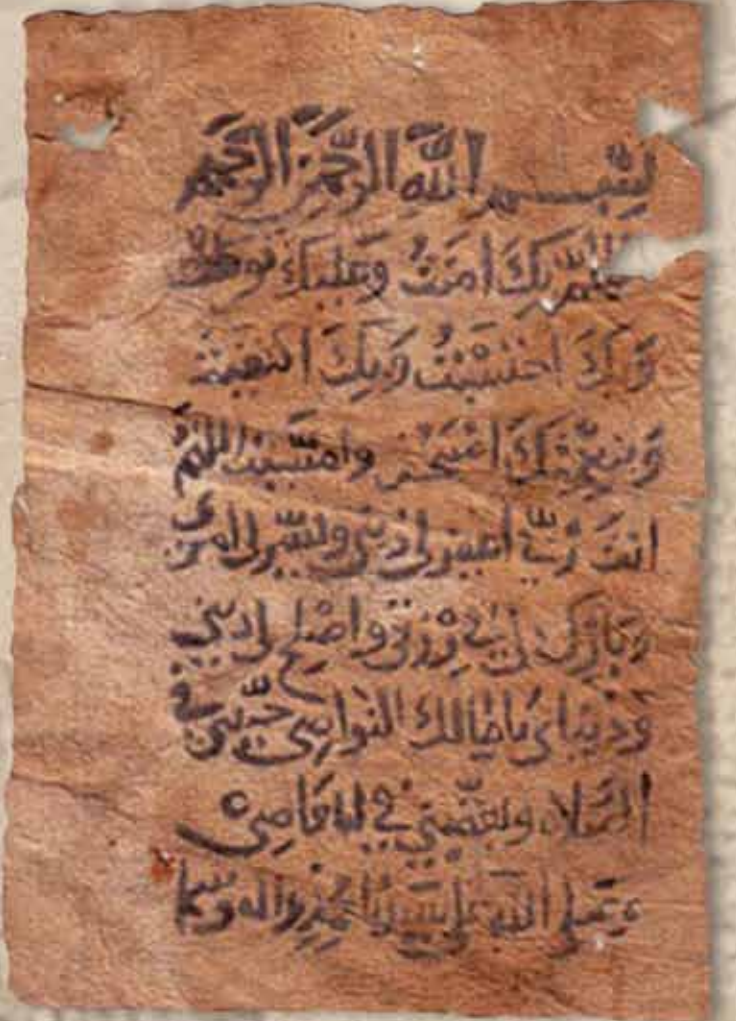 بِسْمِ اللَّهِ الرَّحْمَنِ الرَّحِيمِ
اللهم بِكَ امَنْتُ وَعَلَيْكَ توكلت
وَبِكَ وَبِكَ
وَبِنِعْمَتِكَ اصبحت وامسيت اللهم
انتَ رَبِّي اغفر لي ذنبي ويسر لي امري
وَبَارِكْ لي في رِزْقي واصلح لي ديني
وَدنياي يا مالك النواصي حبّبني في
الصّلاة وبغّضني في المعاصي
وصلى الله على سيدنا محمد واله وسلم